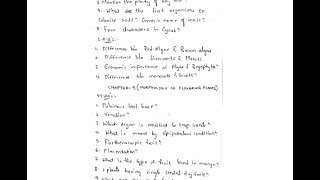 3. Mention the ploidy of any
4. What are the first organisms to
colonise rock? Generic name of moss?
5. Few characters in Cycas?
S.A.Q's:-
1. Difference b/w Red Algae & Brown algae
2. Difference b/w Liverworts & Mosses
3. Economic importance of Algae & Bryophyta?
4. Difference b/w monocots & Dicots?
CHAPTER:5 (MORPHOLOGY OF FLOWERING PLANTS)
V.S.A.Q's:-
1. Pulvinous leaf base?
2. Venation?
3. Which organ is modified to trap insects?
4. What is meant by Epipetalous condition?
5. Parthenocarpic fruit?
6. Placentation?
7. What is the type of fruit found in mango?
8. 2 plants having single seeded dry fruits?